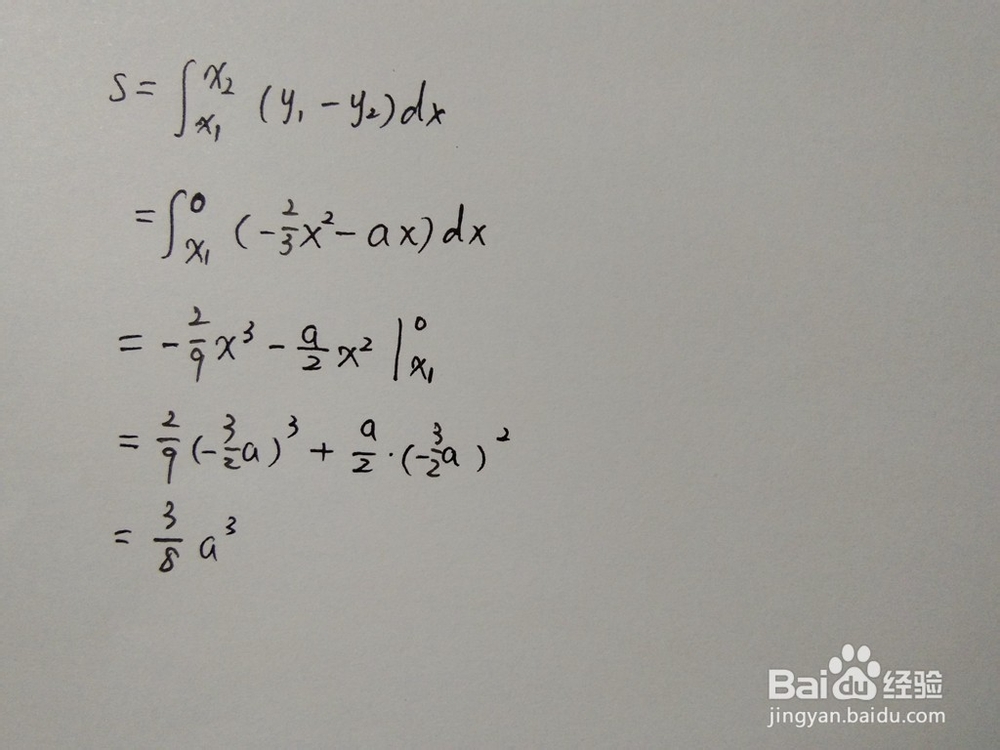 S = ∫_{x₁}^{x₂} (y₁ - y₂)dx
= ∫_{x₁}^{0} (-2/3 x² - ax)dx
= -2/9 x³ - a/2 x² |_{x₁}^{0}
= 2/9 (-3/2 a)³ + a/2 · (-3/2 a)²
= 3/8 a³
Baidu 经验
jingyan.baidu.com